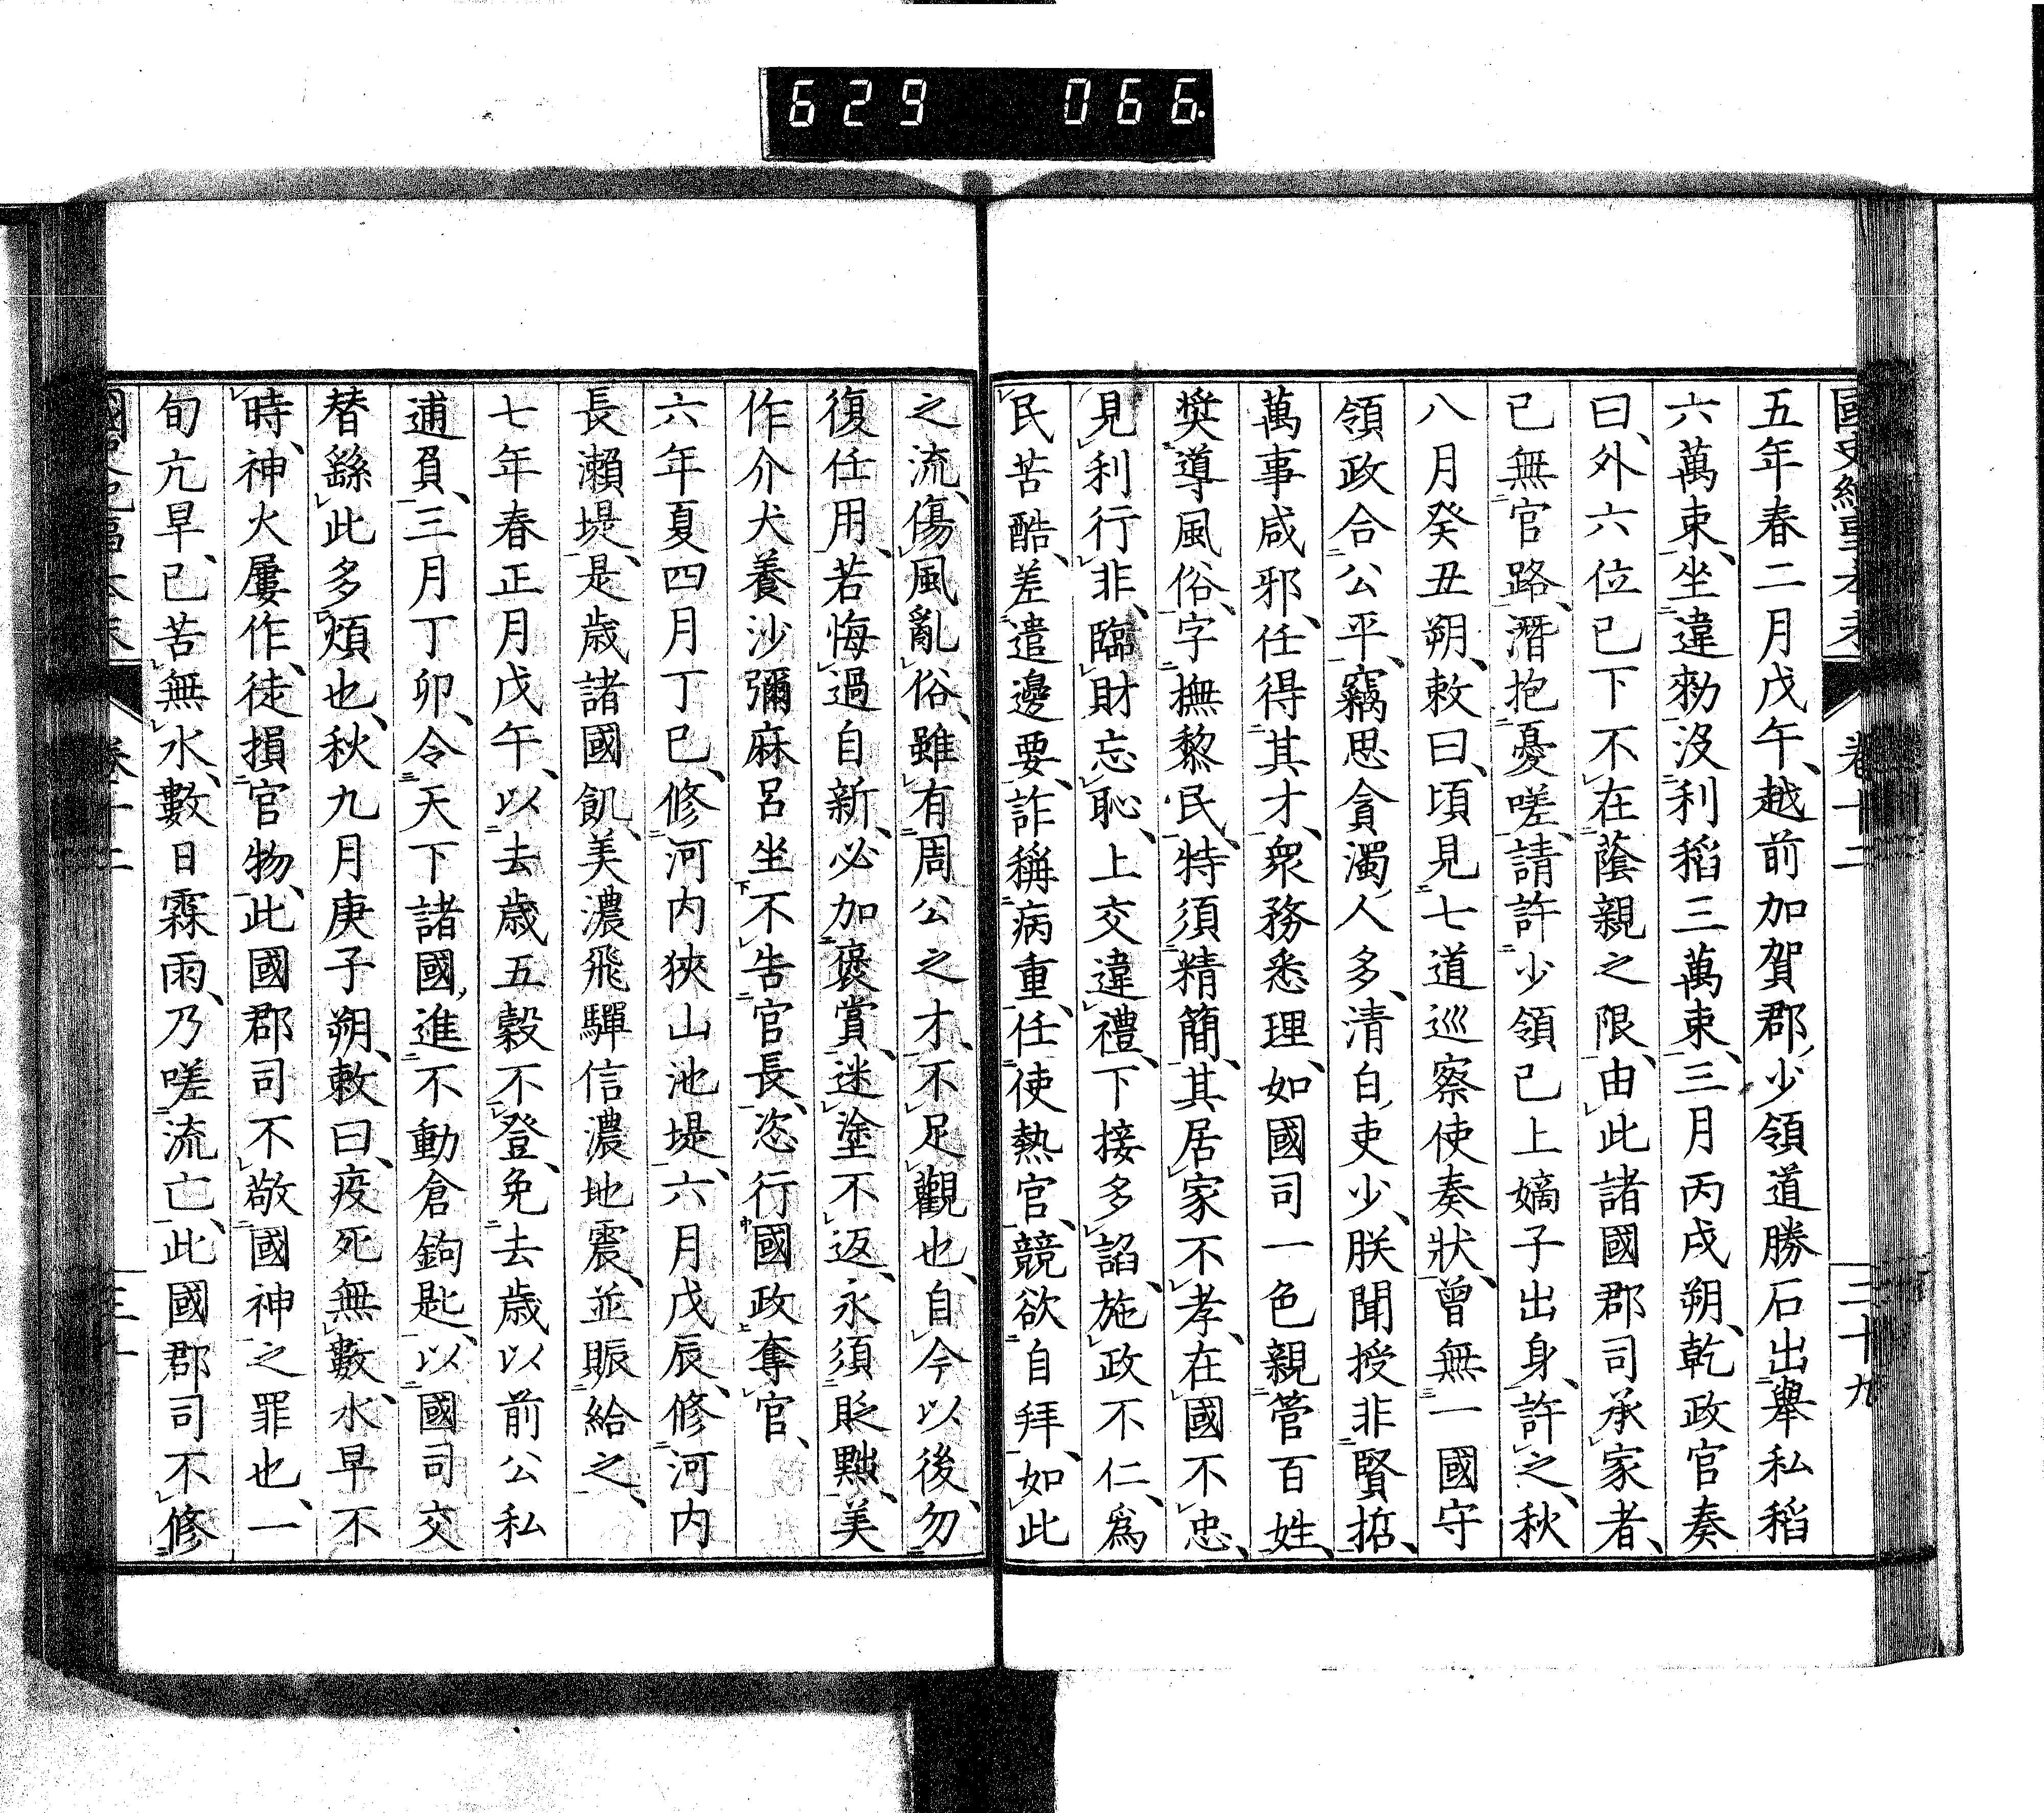 629 066
卷十二
三十九
五年春二月戊午、越前加賀郡少領道勝石出擧私稻
六萬束、坐違勑沒利稻三萬束、三月丙戌朔、乾政官奏
曰、外六位已下不在蔭親之限、由此諸國郡司承家者、
已無官路、潛抱憂嗟、請許少領已上嫡子出身、許之、秋
八月癸丑朔、敕曰、頃見七道巡察使奏狀、曾無一國守
領政合公平、竊思貪濁人多、清白吏少、朕聞授非賢掂、
萬事咸邪、任得其才、衆務悉理、如國司一色親管百姓、
奬導風俗、字撫黎民、特須精簡、其居家不孝、在國不忠、
見利行非、臨財忘恥、上交違禮、下接多諂、施政不仁、爲
民苦酷、差遣邊要、詐稱病重、任使熱官、競欲自拜、如此
之流、傷風亂俗、雖有周公之才、不足觀也、自今以後、勿
復任用、若悔過自新、必加褒賞、迷塗不返、永須貶黜、美
作介犬養沙彌麻呂坐不告官長、恣行國政奪官、
六年夏四月丁巳、修河内狹山池堤、六月戊辰、修河内
長瀨堤、是歲諸國飢、美濃飛驒信濃地震、並賑給之、
七年春正月戊午、以去歲五穀不登、免去歲以前公私
逋負、三月丁卯、令天下諸國進不動倉鉤匙、以國司交
替繇此多煩也、秋九月庚子朔、敕曰、疫死無數、水旱不
時、神火屢作、徒損官物、此國郡司不敬國神之罪也、一
旬亢旱、已苦無水、數日霖雨、乃嗟流亡、此國郡司不修